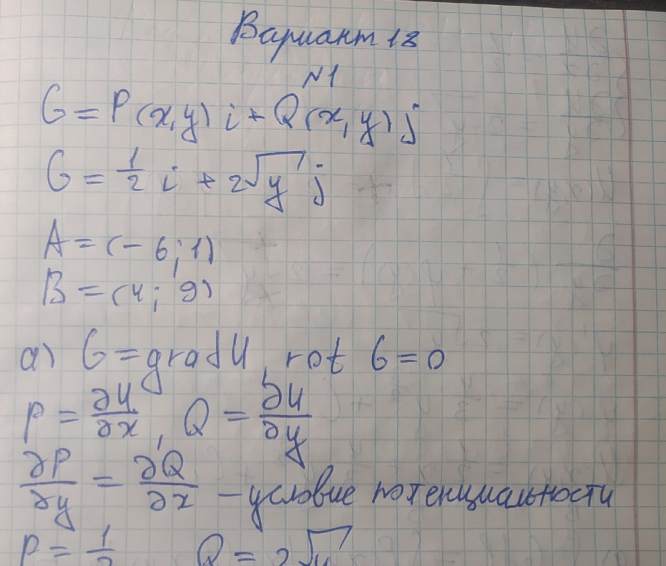 Вариант 18
N1
G = P(x,y) i + Q(x,y) j
G = 1/2 i + 2√y j
A = (-6; 1)
B = (4; 9)
а) G = grad U, rot G = 0
P = ∂U/∂x, Q = ∂U/∂y
∂P/∂y = ∂Q/∂x – условие потенциальности
P = 1/2 Q = 2√y